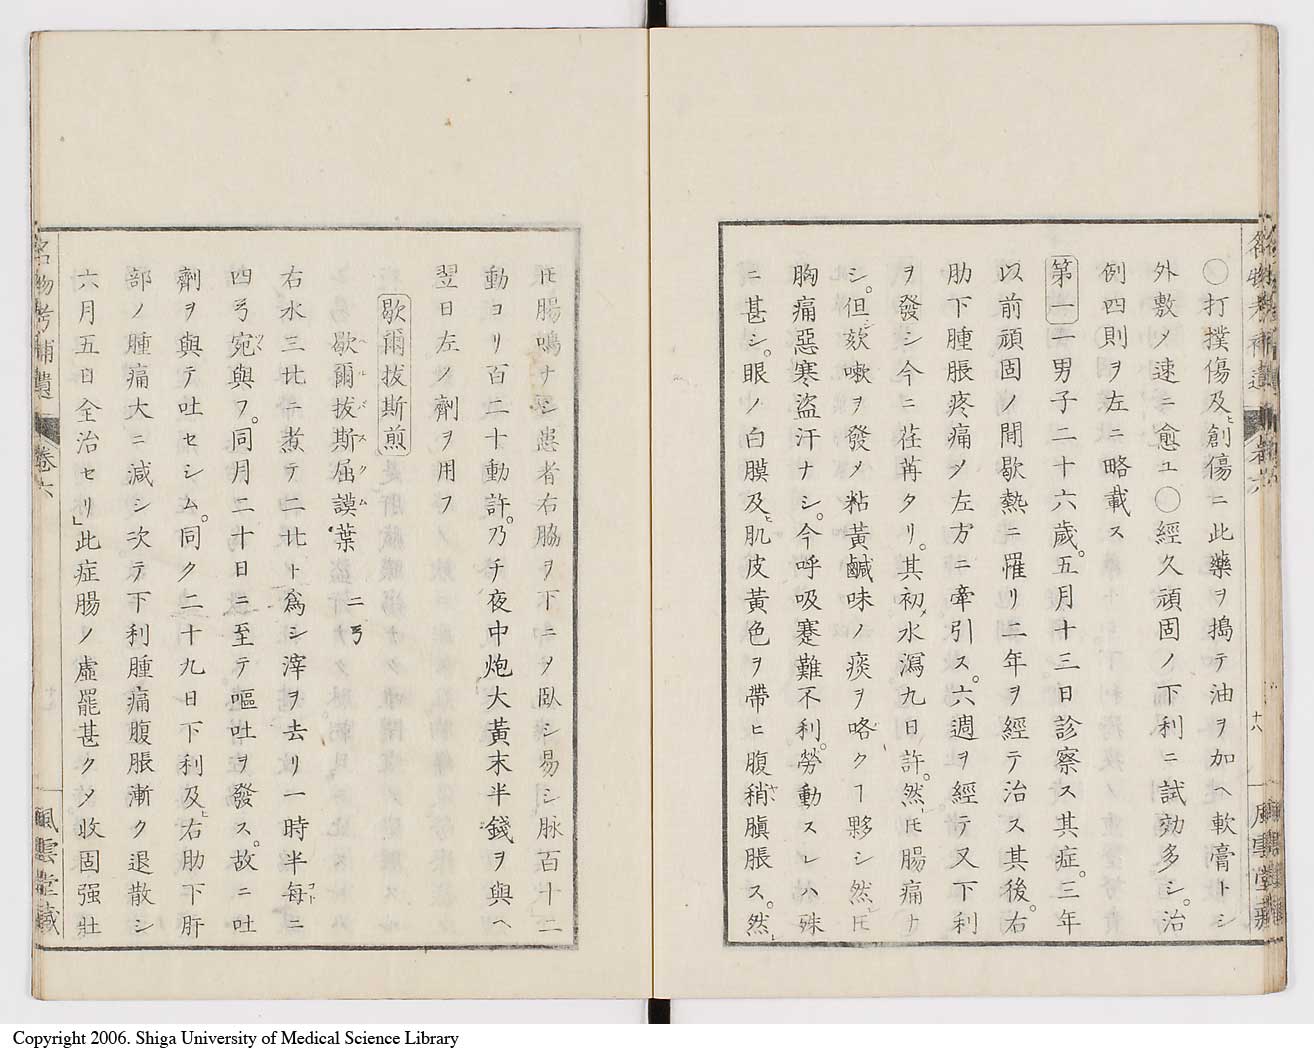 〇打撲傷及ヒ創傷ニ此藥ヲ搗テ油ヲ加ヘ軟膏トシ
外敷メ速ニ愈ユ〇經久頑固ノ下利ニ試効多シ。治
例四則ヲ左ニ略載ス
第一 一男子二十六歳。五月十三日診察ス其症。三年
以前頑固ノ間歇熱ニ罹リ二年ヲ經テ治ス其後。右
肋下腫脹疼痛メ左方ニ牽引ス。六週ヲ經テ又下利
ヲ發シ今ニ荏苒タリ。其初水瀉九日許。然𪜈腸痛ナ
シ。但シ欬嗽ヲ發メ粘黃鹹味ノ痰ヲ咯クヿ夥シ然𪜈
胸痛惡寒盜汗ナシ。今呼吸蹇難不利。勞動スレハ殊
ニ甚シ。眼ノ白膜及ヒ肌皮黃色ヲ帶ヒ腹稍䐜脹ス。然
𪜈腸鳴ナシ患者右脇ヲ下ニヲ臥シ易シ脉百十二
動ヨリ百二十動許。乃チ夜中炮大黃末半錢ヲ與ヘ
翌日左ノ劑ヲ用フ
歇爾拔斯煎
歇爾拔斯屈謨葉 二ヲ
右水三𠤎ニ煮テ二𠤎ト爲シ滓ヲ去リ一時半每ニ
四ヲ宛與フ。同月二十日ニ至テ嘔吐ヲ發ス。故ニ吐
劑ヲ與テ吐セシム。同ク二十九日下利及ヒ右肋下肝
部ノ腫痛大ニ減シ次テ下利腫痛腹脹漸ク退散シ
六月五日全治セリ」此症腸ノ虛罷甚クメ收固强壯
名物考補遺
卷六
十八
風雲堂藏